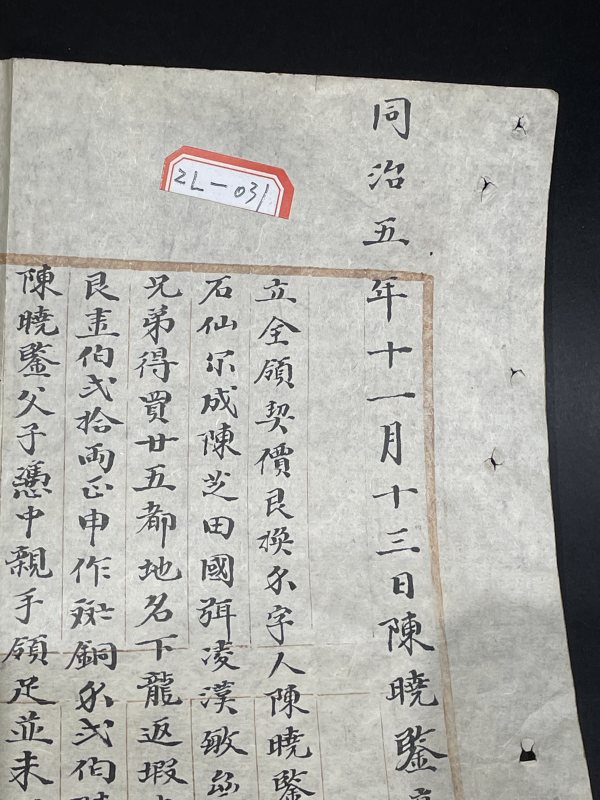 2L-031
同治五年十一月十三日陳曉鑒
立全領契價艮換尔字人陳曉鑒
石仙尔成陳芝田國弭凌漢敏
兄弟得買廿五都地名下龍返瑕
艮壹伯弍拾両正申作銅尔弍伯
陳曉鑒父子憑中親手領足並未